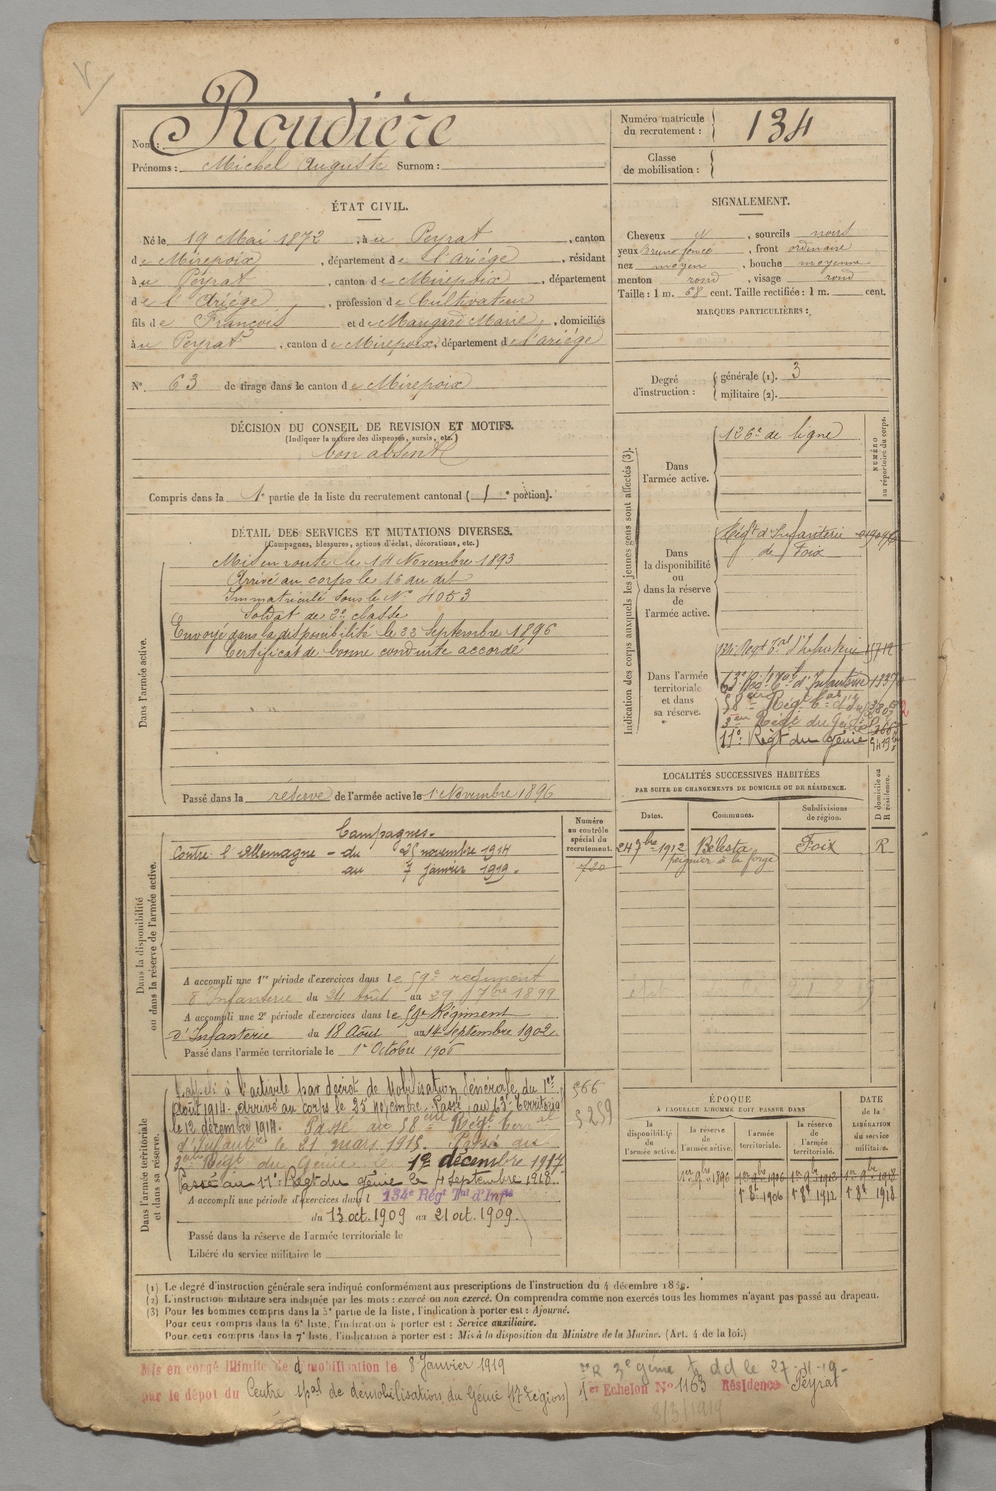 Nom : Roudière
Prénoms : Michel Auguste Surnom :
Numéro matricule du recrutement : 134
Classe de mobilisation :
ÉTAT CIVIL.
Né le 19 Mai 1872, à u Peyrat, canton
de Mirepoix, département de l'Ariége, résidant
à u Péyrat, canton de Mirepoix, département
de l'Ariége, profession de Cultivateur
fils de François et de Maugard Marie, domiciliés
à u Peyrat, canton de Mirepoix, département de l'ariége
N° 63 de tirage dans le canton de Mirepoix
SIGNALEMENT.
Cheveux N, sourcils noirs
yeux Bruns foncé, front ordinaire
nez moyen, bouche moyenne
menton rond, visage rond
Taille : 1 m. 68 cent. Taille rectifiée : 1 m. cent.
MARQUES PARTICULIÈRES :
Degré d'instruction : générale (1). 3
militaire (2).
DÉCISION DU CONSEIL DE REVISION ET MOTIFS.
(Indiquer la nature des dispenses, sursis, etc.)
bon absent
Compris dans la 1e partie de la liste du recrutement cantonal (1e portion).
DÉTAIL DES SERVICES ET MUTATIONS DIVERSES.
(Campagnes, blessures, actions d'éclat, décorations, etc.)
Dans l'armée active.
Mis en route le 14 Novembre 1893
Arrivé au corps le 16 du dit
Immatriculé sous le N° 4053
Soldat de 2e classe
Envoyé dans la disponibilité le 22 Septembre 1896
Certificat de bonne conduite accordé
Passé dans la réserve de l'armée active le 1 Novembre 1896
Indication des corps auxquels les jeunes gens sont affectés (3).
NUMÉRO au répertoire du corps.
Dans l'armée active.
126e de ligne
Dans la disponibilité ou dans la réserve de l'armée active.
Régt d'Infanterie
de Foix
Dans l'armée territoriale et dans sa réserve.
134e Regt Tal d'Infanterie
63e Regt Tal d'Infanterie 1337
58e Régt
Régt du Génie
11e Régt du Génie
LOCALITÉS SUCCESSIVES HABITÉES
PAR SUITE DE CHANGEMENTS DE DOMICILE OU DE RÉSIDENCE.
D domicile ou R résidence.
Dates. Communes. Subdivisions de région.
24 7bre 1912 Bélesta Foix R
peignier à la forge
Dans la disponibilité ou dans la réserve de l'armée active.
Numéro au contrôle spécial du recrutement.
720
Campagnes.
Contre l'Allemagne - du 25 novembre 1914
au 7 janvier 1919.
A accompli une 1re période d'exercices dans le 59e regiment
d'Infanterie du 24 Août au 29 7bre 1899
A accompli une 2e période d'exercices dans le 59e Régiment
d'Infanterie du 18 Août au 14 Septembre 1902
Passé dans l'armée territoriale le 1er Octobre 1906
Dans l'armée territoriale et dans sa réserve.
Rappelé à l'activité par décret de Mobilisation Générale du 1er
Août 1914. arrivé au corps le 25 novembre. Passé au 63e Territorial
le 12 décembre 1914. Passé au 58e Régt terr al
d'Infanterie le 21 mars 1915. Passé au
2e Régt du Génie le 1er décembre 1917
Passé au 11e Régt du génie le 4 Septembre 1918.
A accompli une période d'exercices dans l 134e Régt Tal d'Infie
du 13 oct. 1909 au 21 oct. 1909.
Passé dans la réserve de l'armée territoriale le
Libéré du service militaire le
566
5259
ÉPOQUE
À LAQUELLE L'HOMME DOIT PASSER DANS
DATE de la LIBÉRATION du service militaire.
la disponibilité de l'armée active. la réserve de l'armée active. l'armée territoriale. la réserve de l'armée territoriale.
1er 9bre 1896 1er 9bre 1906 1er 9bre 1912 1er 9bre 1918
1er 8bre 1906 1er 8bre 1912 1er 8bre 1918
(1) Le degré d'instruction générale sera indiqué conformément aux prescriptions de l'instruction du 4 décembre 1889.
(2) L'instruction militaire sera indiquée par les mots : exercé ou non exercé. On comprendra comme non exercés tous les hommes n'ayant pas passé au drapeau.
(3) Pour les hommes compris dans la 5e partie de la liste, l'indication à porter est : Ajourné.
Pour ceux compris dans la 6e liste, l'indication à porter est : Service auxiliaire.
Pour ceux compris dans la 7e liste, l'indication à porter est : Mis à la disposition du Ministre de la Marine. (Art. 4 de la loi.)
Mis en congé illimité de démobilisation le 8 Janvier 1919
par le dépôt du Centre spal de démobilisation du Génie (17e région)
3e génie dd le 27-11-19-
1er Echelon N° 1163 Résidence Peyrat
8/3/1919